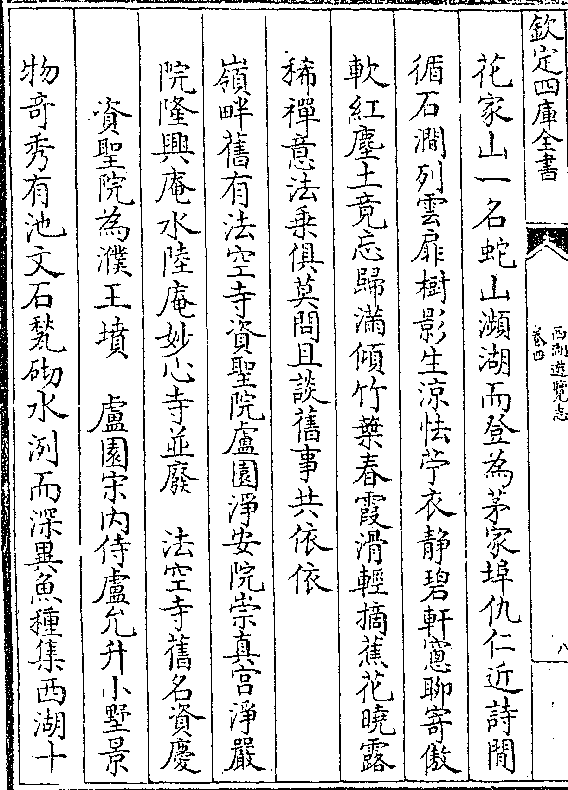 欽定四庫全書
西湖遊覽志
卷四
八
花家山一名蛇山瀕湖而登為茅家埠仇仁近詩閒
循石澗列雲扉樹影生涼怯苧衣静碧軒窻聊寄傲
軟紅塵土竟忘歸滿傾竹葉春霞滑輕摘蕉花曉露
稀禪意法乗俱莫問且談舊事共依依
嶺畔舊有法空寺資聖院盧園淨安院崇真宫淨嚴
院隆興庵水陸庵妙心寺並廢 法空寺舊名資慶
資聖院為濮王墳 盧園宋内侍盧允升小墅景
物奇秀有池文石甃砌水洌而深異魚種集西湖十